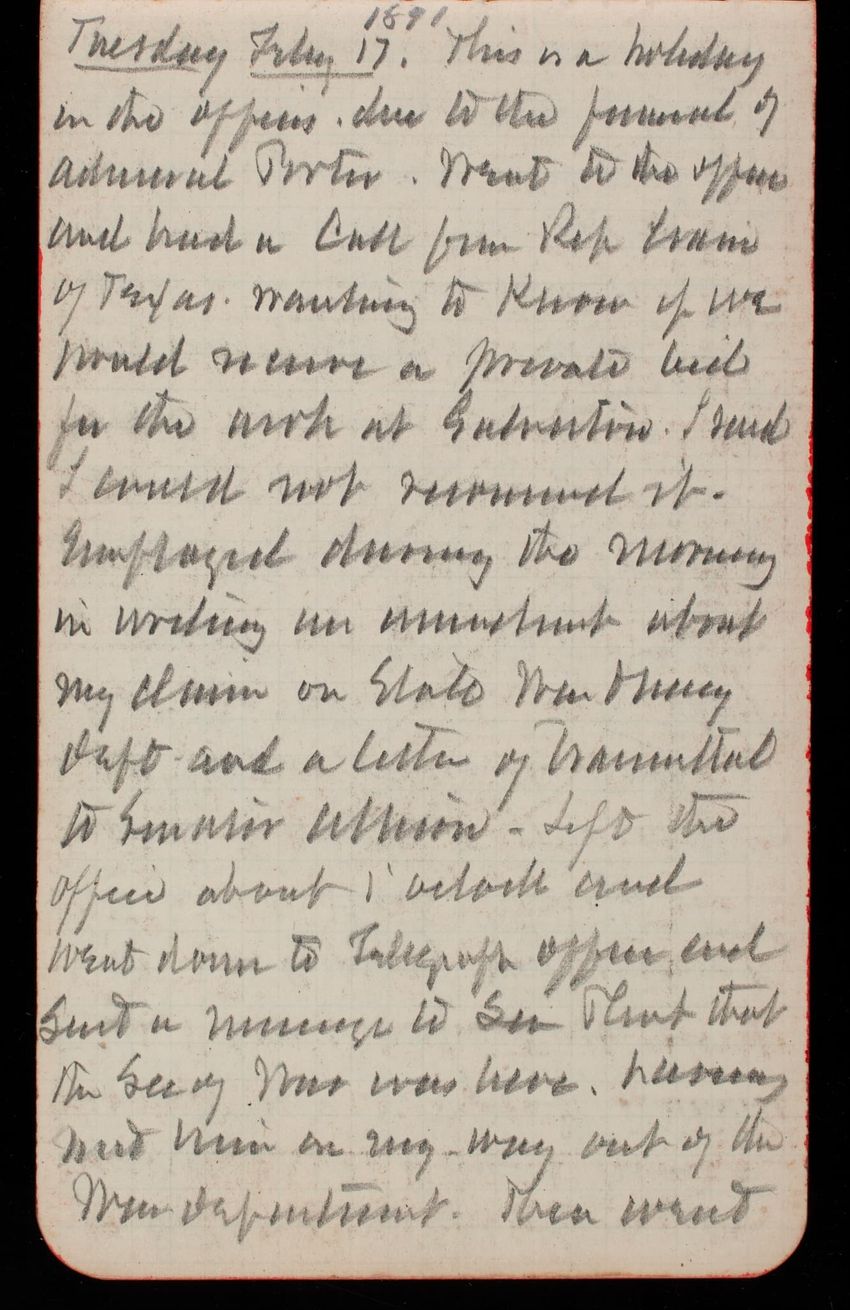 1891
Tuesday Feby 17. This is a holiday
in the offices. due to the funeral of
Admiral Porter. Went to the office
and had a Call from Rep Crain
of Texas. wanting to Know if we
would receive a private bid
for the work at Galveston. I said
I could not recommend it.
Employed during the morning
in writing an amendment about
my claim on State War & Navy
Dept and a letter of transmittal
to Senator Allison - Left the
office about 1 oclock and
went down to Telegraph office and
Sent a message to Gen that
the Sec of War was here. having
met him on my way out of the
War Department. Then went